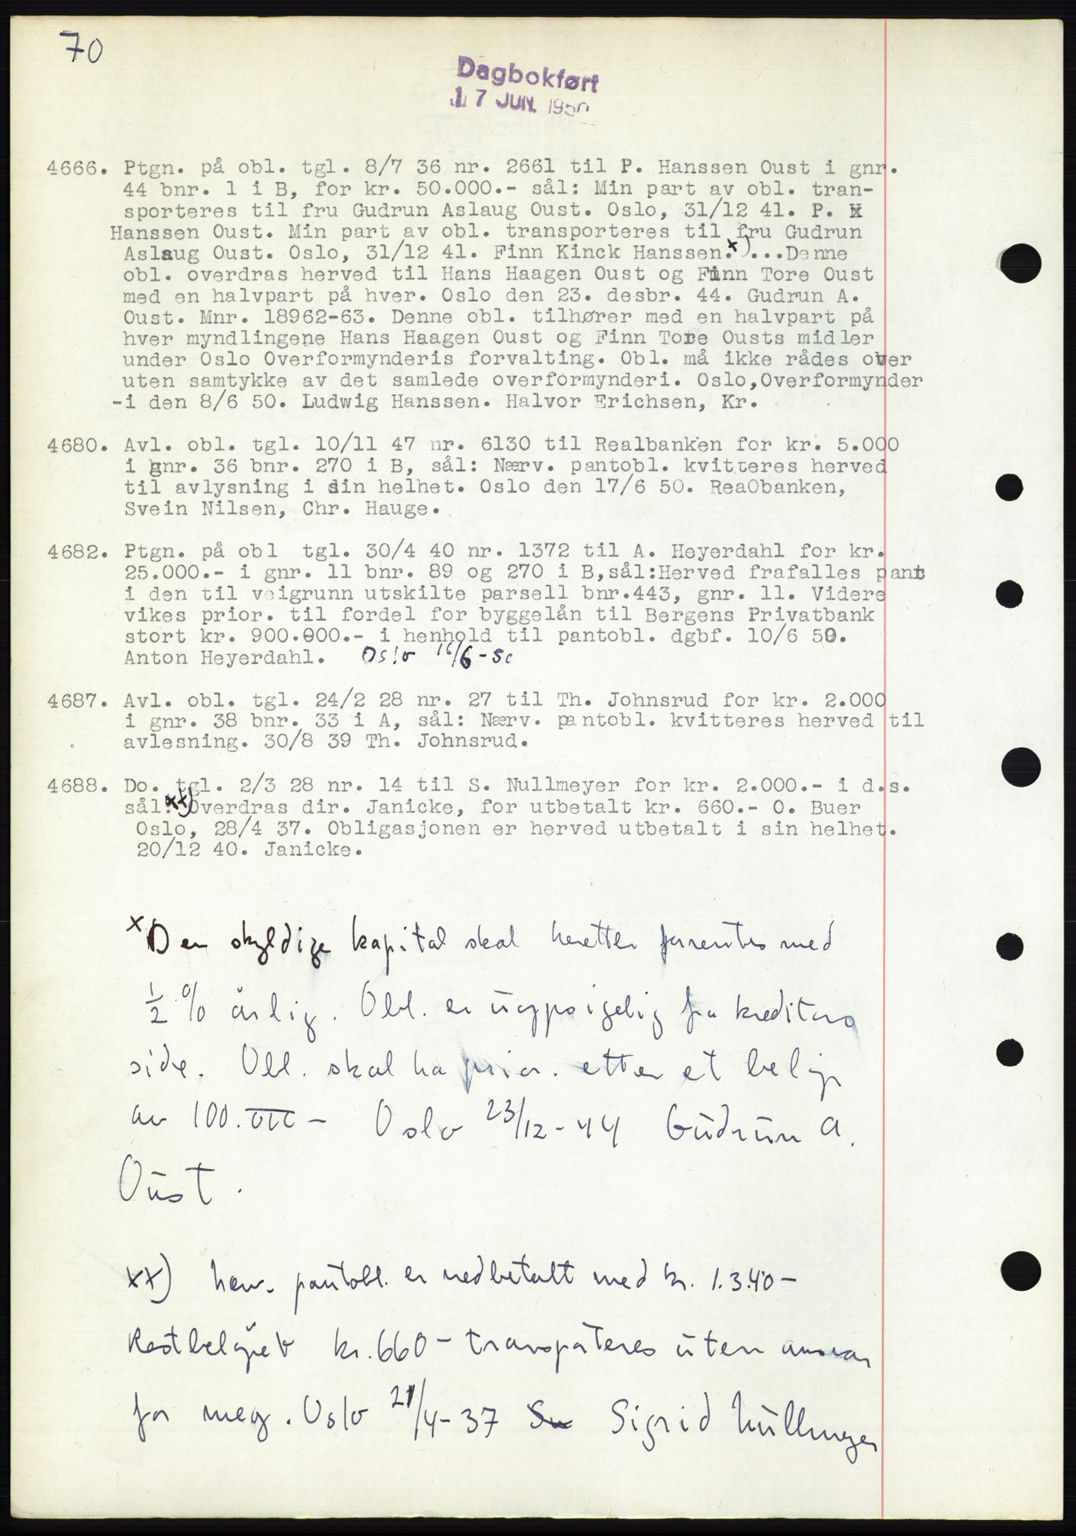 70
Dagbokført
17 JUN. 1950
4666. Ptgn. på obl. tgl. 8/7 36 nr. 2661 til P. Hanssen Oust i gnr.
44 bnr. 1 i B, for kr. 50.000.- sål: Min part av obl. tran-
sporteres til fru Gudrun Aslaug Oust. Oslo, 31/12 41. P.
Hanssen Oust. Min part av obl. transporteres til fru Gudrun
Aslaug Oust. Oslo, 31/12 41. Finn Kinck Hanssen. x)...Denne
obl. overdras herved til Hans Haagen Oust og Finn Tore Oust
med en halvpart på hver. Oslo den 23. desbr. 44. Gudrun A.
Oust. Mnr. 18962-63. Denne obl. tilhører med en halvpart på
hver myndlingene Hans Haagen Oust og Finn Tore Ousts midler
under Oslo Overformynderis forvalting. Obl. må ikke rådes over
uten samtykke av det samlede overformynderi. Oslo,Overformynder
-i den 8/6 50. Ludwig Hanssen. Halvor Erichsen, Kr.
4680. Avl. obl. tgl. 10/11 47 nr. 6130 til Realbanken for kr. 5.000
i gnr. 36 bnr. 270 i B, sål: Nærv. pantobl. kvitteres herved
til avlysning i sin helhet. Oslo den 17/6 50. ReaObanken,
Svein Nilsen, Chr. Hauge.
4682. Ptgn. på obl tgl. 30/4 40 nr. 1372 til A. Heyerdahl for kr.
25.000.- i gnr. 11 bnr. 89 og 270 i B,sål:Herved frafalles pant
i den til veigrunn utskilte parsell bnr.443, gnr. 11. Videre
vikes prior. til fordel for byggelån til Bergens Privatbank
stort kr. 900.000.- i henhold til pantobl. dgbf. 10/6 50.
Anton Heyerdahl. Oslo 16/6-50
4687. Avl. obl. tgl. 24/2 28 nr. 27 til Th. Johnsrud for kr. 2.000
i gnr. 38 bnr. 33 i A, sål: Nærv. pantobl. kvitteres herved til
avlesning. 30/8 39 Th. Johnsrud.
4688. Do. tgl. 2/3 28 nr. 14 til S. Nullmeyer for kr. 2.000.- i d.s.
sål: xx) Overdras dir. Janicke, for utbetalt kr. 660.- O. Buer
Oslo, 28/4 37. Obligasjonen er herved utbetalt i sin helhet.
20/12 40. Janicke.
x Den skyldige kapital skal heretter forrentes med
1/2 % årlig. Obl. er uoppsigelig fra kreditors
side. Obl. skal ha prior. etter et beløp
av 100.000- Oslo 23/12-44 Gudrun A.
Oust.
xx) Nærv. pantobl. er nedbetalt med kr. 1.340-
Restbeløpet kr. 660- transporteres uten ansvar
for meg. Oslo 21/4-37 Sigrid Nullmeyer